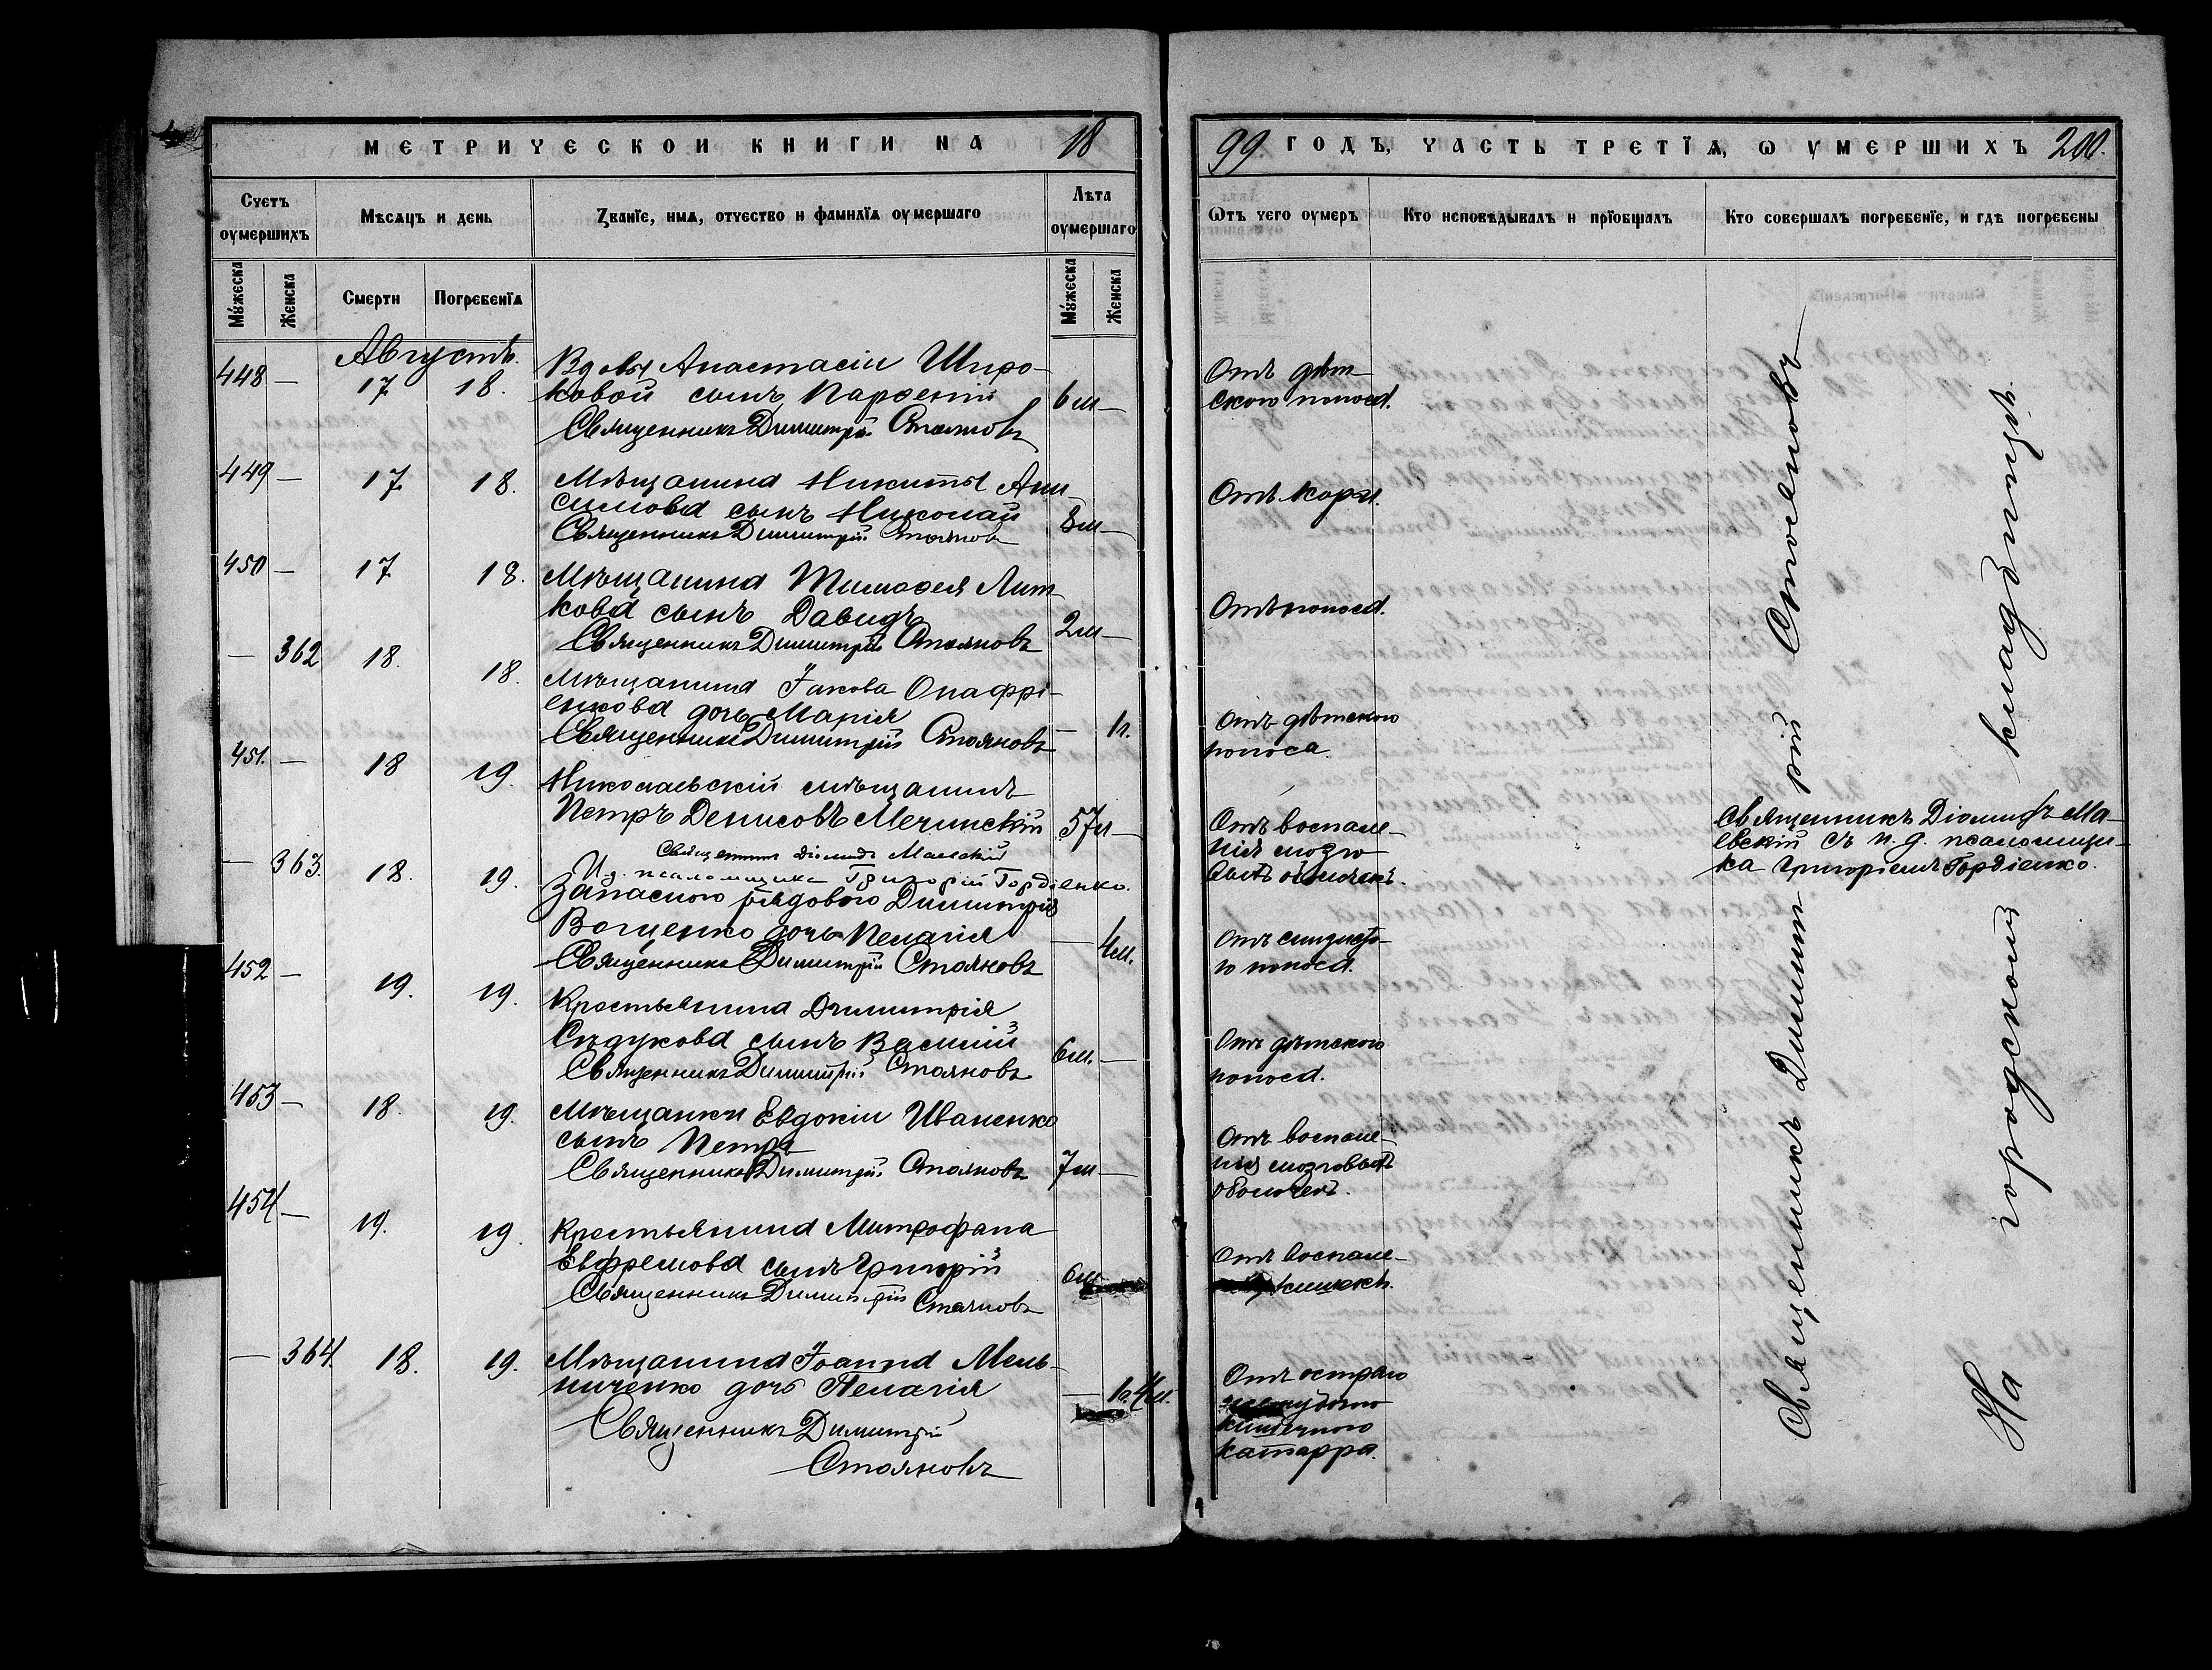 МЕТРИЧЕСКОИ КНИГИ НА 18
Счетъ оумершихъ
Мѣсяцъ и день
Званїе, имѧ, отчество и фамилїѧ оумершаго
Лѣта оумершаго
Мужеска
Женска
Смерти
Погребенїѧ
Мужеска
Женска
Августъ.
448 — 17 18. Вдовы Анастасіи Широ-
ковой сынъ Парѳеній 6 м —
Священникъ Димитрій Стояновъ
449 — 17 18. Мѣщанина Никиты Ани-
симова сынъ Николай 8 м —
Священникъ Димитрій Стояновъ
450 — 17 18. Мѣщанина Тимоѳея Лит-
кова сынъ Давидъ 2 м —
Священникъ Димитрій Стояновъ
— 362 18. 18. Мѣщанина Іакова Онафрі-
енкова дочь Марія — 1 г.
Священникъ Димитрій Стояновъ
451. — 18 19. Николаевскій мѣщанинъ
Петръ Денисовъ Мечинскій 57 л —
Священникъ Діомидъ Маевскій
И. д. псаломщика Григорій Гордіенко.
— 363. 18. 19. Запасного рядового Димитрія
Вощенко дочь Пелагія — 4 м.
Священникъ Димитрій Стояновъ
452 — 19. 19. Крестьянина Димитрія
сынъ Василій 6 м. —
Священникъ Димитрій Стояновъ
453 — 18. 19. Мѣщанки Евдокіи Иваненко
сынъ Петръ 7 м —
Священникъ Димитрій Стояновъ
454 — 19. 19. Крестьянина Митрофана
Евфремова сынъ Григорій 6 м
Священникъ Димитрій Стояновъ
— 364. 18. 19. Мѣщанина Іоанна Мель-
ниченко дочь Пелагія — 1 г. 4 м.
Священникъ Димитрій
Стояновъ
99 ГОДЪ, ЧАСТЬ ТРЕТЇѦ, Ѡ УМЕРШИХЪ 200.
Ѿтъ чего оумеръ
Кто исповѣдывалъ и прїобщалъ
Кто совершалъ погребенїе, и гдѣ погребены
Отъ дѣт-
скаго поноса.
Отъ кори.
Отъ поноса.
Отъ дѣтскаго
поноса.
Отъ воспале-
нія мозго
выхъ оболочекъ.
Отъ слизисто-
го поноса.
Отъ дѣтскаго
поноса.
Отъ воспале-
нія мозговыхъ
оболочекъ.
Отъ воспале-
кишекъ.
Отъ остраго
кишечного
катарра.
Священникъ Діомидъ Ма-
евскій съ и. д. псаломщи-
ка Григоріемъ Гордіенко.
Священникъ Димитрій Стояновъ
На городскомъ кладбищѣ.